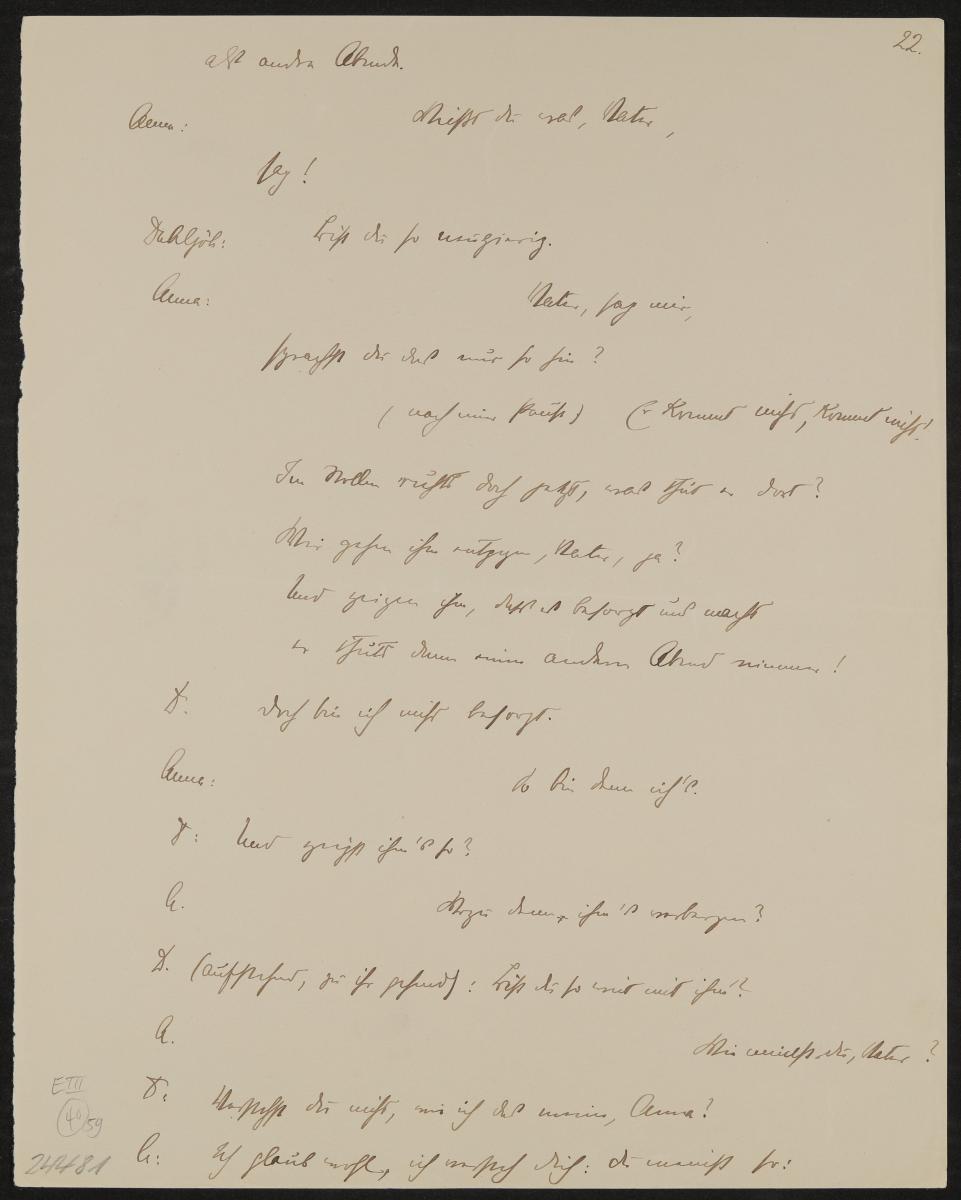 22.
als andre Abende.
Anna: Weißt du was, Vater,
sag!
Dahljöh: Bist du so neugierig.
Anna: Vater, sag mir,
sprachst du das nur so hin?
(nach einer Pause) Er kommt nicht, kommt nicht!
Im Stollen ruht's doch jetzt, was thut er dort?
Wir gehen ihm entgegen, Vater, ja?
Und zeigen ihm, daß es besorgt uns macht
er thut's dann einen andern Abend nimmer!
D. Doch bin ich nicht besorgt.
Anna: So bin denn ich's.
D: Und zeigst ihm's so?
A. Wozu denn ihm's verbergen?
D. (aufstehend, zu ihr gehend): Bist du so weit mit ihm?
A. Wie meinst du, Vater?
D. Verstehst du nicht, wie ich das meine, Anna?
A: Ich glaub wohl, ich versteh dich: du meinst so:
ETII
40/59
24481